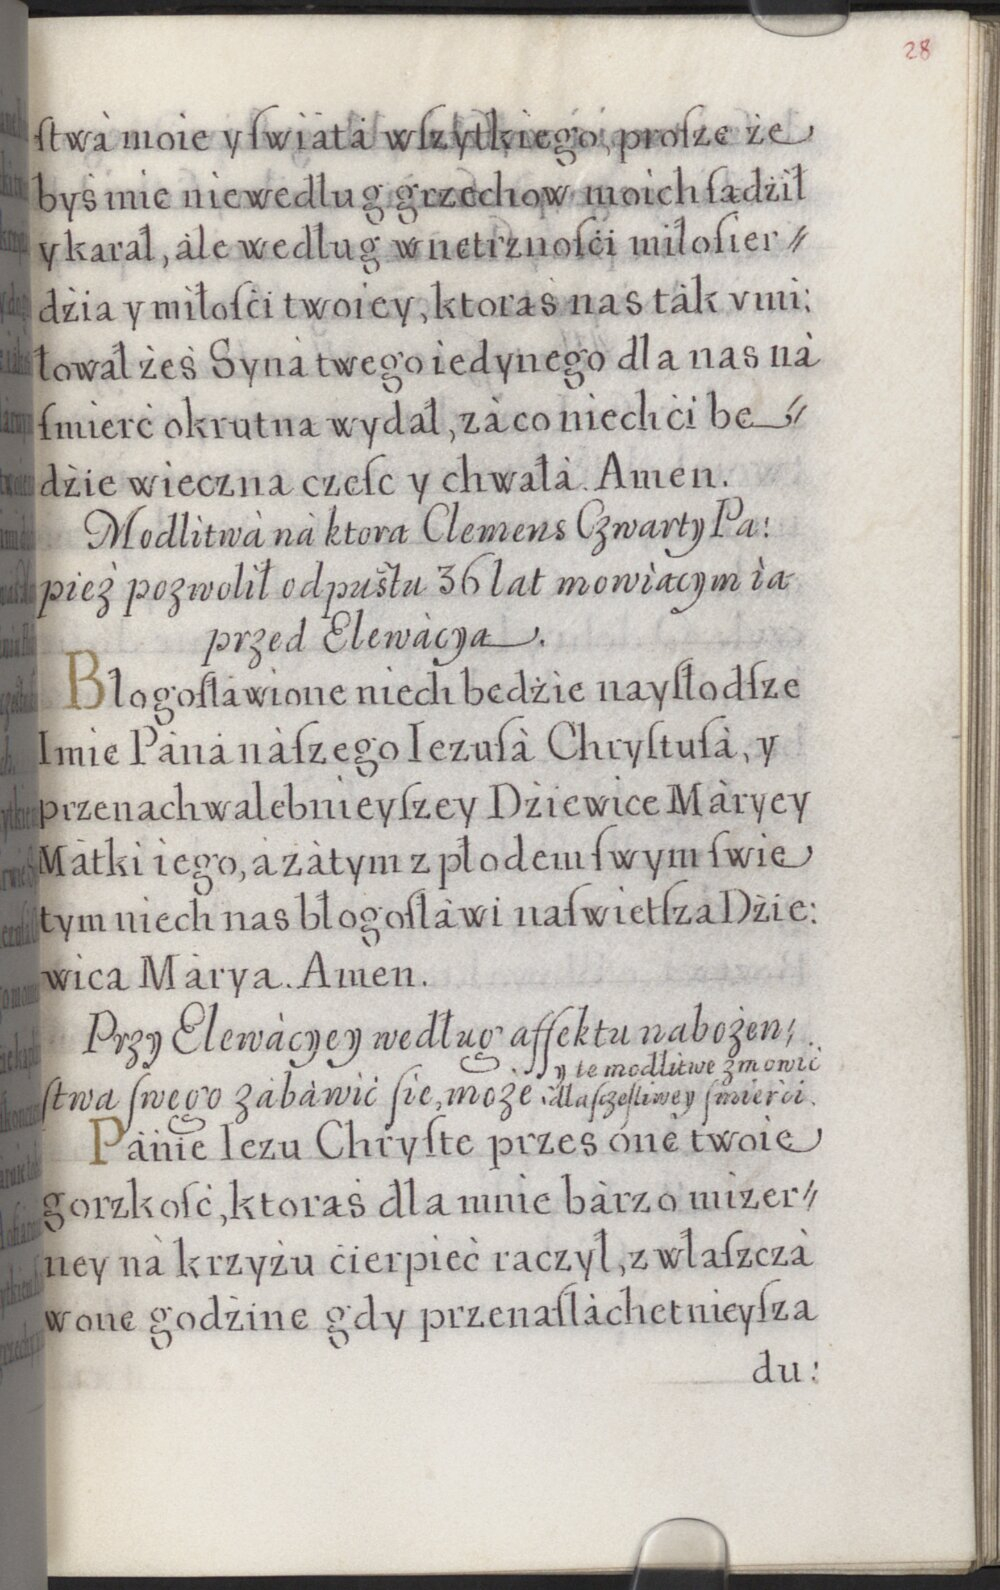 28
ſtwà moie y ſwiátá wſzytkiego, proſze że
byś mie niewedług grzechow moich ſądźił
y karał, ále według wnetrznośći miłoſier⸗
dźia y miłośći twoiey, ktoraś nas ták vmi:
łował żeś Syná twego iedynego dla nas ná
ſmierć okrutna wydał, zá co niech ći be⸗
dźie wieczna czeſc y chwałá. Amen.
Modlitwà nà ktora Clemens Czwarty Pa:
pież pozwolił odpuſtu 36 lat mowiàcym ià
przed Elewàcya.
Błogoſławione niech bedźie nayſłodſze
Imie Páná náſzego Iezuſá Chryſtuſà, y
przenachwalebnieyſzey Dźiewice Máryey
Mátki iego, á zátym z płodem ſwym ſwie
tym niech nas błogoſłáwi naſwietſza Dźie:
wica Márya. Amen.
Przy Elewàcyey według affektu nabożen:
y te modlitwe zmowić
ſtwa ſwego zabàwić ſie, może dla ſczeſliwey ſmierći.
Pánie Iezu Chryſte przes óne twoie
gorzkość, ktoraś dla mnie bárzo mizer⸗
ney ná krzyżu ćierpieć raczył, zwłaſzczá
w one godźine gdy przenaſláchetnieyſza
du: